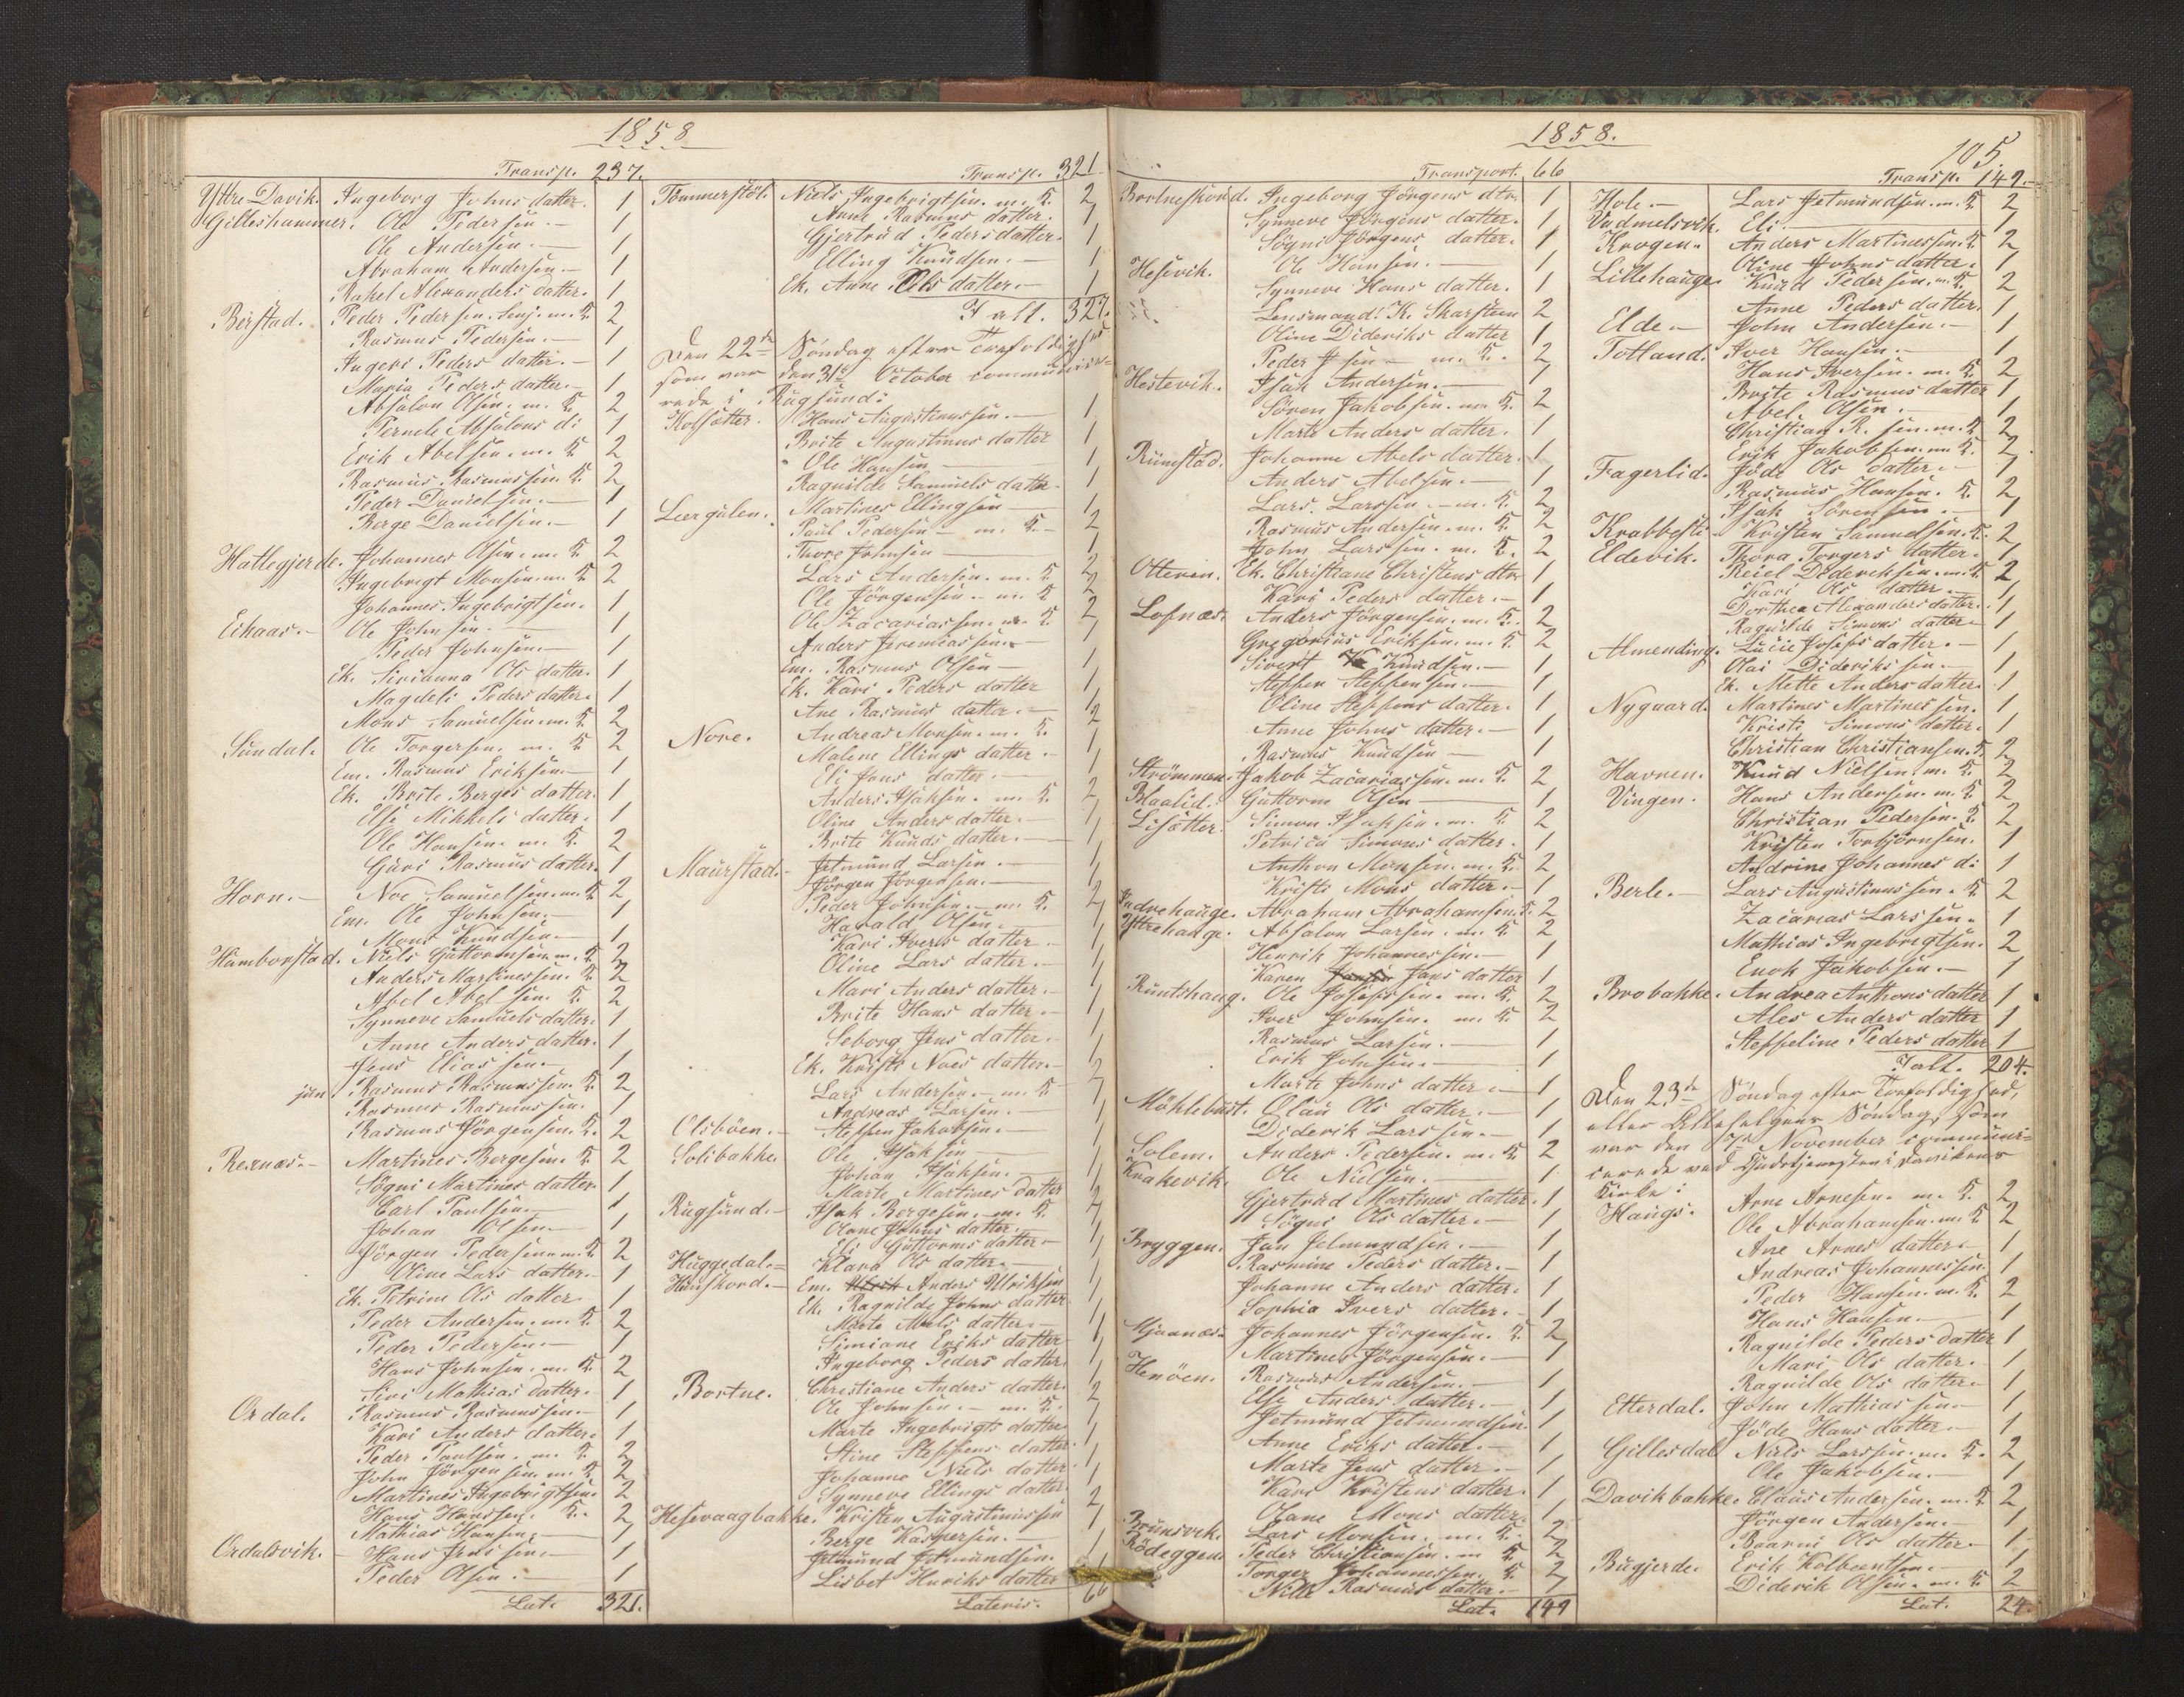 1858
Transp. 237.
Yttre Davik. Ingeborg Johns datter. 1
Gilleshammer. Ole Pedersen. — 1
Ole Andersen. — 1
Abraham Andersen. — 1
Rakel Alexanders datter. 1
Berstad. Peder Pedersen. Senj. m. K. 2
Rasmus Pedersen. — 1
Ingeri Peders datter. — 1
Maria Peders datter. — 1
Absalon Olsen. m. K. 2
Pernele Absalons d: 1
Erik Abelsen. m. K. 2
Rasmus Rasmussen. K. 2
Peder Danielsen. — 1
Berge Danielsen. — 1
Hattegjerde. Johannes Olsen. m. K. 2
Ingebrigt Monsen. m. K. 2
Johannes Ingebrigtsen. 1
Eihaas. — Ole Johnsen. — 1
Peder Johnsen. — 1
Ek. Sirianna Ols datter. 1
Magdeli Peders datter. 1
Mons Samuelsen m. K. 2
Sundal. Ole Torgersen. m. K. 2
Em. Rasmus Eriksen. — 1
Ek. Brite Berges datter. 1
Else Mikkels datter. 1
Ole Hansen. m. K. 2
Guri Rasmus datter. 1
Horn. — Noe Samuelsen. m. K. 2
Em. Ole Johnsen. — 1
Mons Knudsen. — 1
Hamborstad. Niels Guttormsen. m. K. 2
Anders Martinessen. K. 2
Abel Abelsen. K. 2
Synneve Samuels datter. 1
Anne Anders datter. 1
Jens Eliassen. — 1
jun Rasmus Rasmussen. K. 2
Rasmus Rasmussen. 1
Rasmus Jörgensen. K. 2
Rexnæs. — Martines Bergesen. K. 2
Sögni Martines datter. 1
Carl Paulsen. — 1
Johan Olsen. — 1
Jörgen Pedersen. m. K. 2
Oline Lars datter. — 1
Ek. Petrine Ols datter 1
Peder Andersen. m. K. 2
Peder Pedersen. — 1
Hans Johnsen. m. K. 2
Siri Mathias datter. 1
Ordal. Rasmus Rasmussen. — 1
Kari Anders datter. 1
Peder Paulsen. m. K. 2
John Jörgensen. m. K. 2
Martines Ingebrigtsen. 2
Hans Hanssen. K. 2
Mathias Hansen. — 1
Ordalsvik. — Hans Jenssen. — 1
Peder Olsen. — 1
Lat. 321.
Transp. 321
Tömmerstöl. Niels Ingebrigtsen. m. K. 2
Anne Rasmus datter. 1
Gjertrud Peders datter. 1
Elling Knudsen. — 1
Ek. Anne Ols datter. — 1
I alt. 327.
Den 22de Söndag efter Trefoldighed
som var den 31te October communice=
rede i Rugsund:
Kolsætter. Hans Augustinussen. — 1
Brite Augustinus datter 1
Ole Hansen — 1
Ragnilde Samuels datter 1
Leergulen. Martines Ellingsen — 1
Paul Pedersen — m. K. — 2
Thore Johnsen — 1
Lars Andersen. m. K. 2
Ole Jörgensen. — m. K. 2
Ole Zacariassen. m. K. 2
Anders Jeremiassen. — 1
Em. Rasmus Olsen — 1
Ek. Kari Peders datter 1
Ane Rasmus datter. — 1
Nore. Andreas Monsen. m. K. 2
Malene Ellings datter. — 1
Eli Jons datter. — 1
Anders Isaksen. m. K. 2
Oline Anders datter. — 1
Brite Knuds datter. — 1
Maurstad. — Jetmund Larsen. — 1
Jörgen Jörgensen. — 1
Peder Johnsen. — m. K. 2
Harald Olsen. — 1
Kari Ivers datter. — 1
Oline Lars datter. — 1
Mari Anders datter. — 1
Brite Hans datter. — 1
Seborg Jens datter. — 1
Ek. Kristi Noes datter. — 1
Lars Andersen. — m. K. 2
Andreas Larsen. — 1
Olsböen. — Steffen Jakobsen. — 1
Solibakke. Ole Isaksen — 1
Johan Isaksen. — 1
Marte Martines datter 1
Rugsund. — Isak Bergesen. — m. K. 2
Oline Johns datter. — 1
Eli Guttorms datter — 1
Huggedal. — Klara Ols datter. — 1
Hauskord. — Em. Anders Ulriksen 1
Ek. Ragnilde Johns datter 1
Marte Abels datter. — 1
Simiane Eriks datter 1
Ingeborg Peders datter. 1
Bortne. Christiane Anders datter. 1
Ole Johnsen. — m. K. 2
Marte Ingebrigts datter 1
Stine Steffens datter 1
Johanne Niels datter 1
Synneve Ellings datter 1
Hesevaagbakke. Kristen Augustinussen 2
Berge Kaspersen. — 1
Jetmund Jetmundsen. 1
Lisbet Henriks datter 1
Lateris. 66
1858.
105.
Transport. 66
Bortneskord. Ingeborg Jörgens dtr. 1
Synneve Jörgens datter. 1
Sögni Jörgens datter. 1
Hesevik. Ole Hansen. — 1
Synneve Hans datter. 1
Lensmand: K. Skarsteen 2
Oline Dideriks datter 1
Peder Isen — m. K. — 2
Hestevik. Isak Andersen. — 1
Sören Jakobsen. m. K. 2
Marte Anders datter. 1
Rumstad. Johanne Abels datter. 1
Anders Abelsen. — 1
Lars Larssen. — m. K. 2
Rasmus Andersen. m. K. 2
John Larssen. m. K. 2
Otteren. Ek. Christiane Christens dtr. 1
Kari Peders datter. — 1
Lofnæs. Anders Jörgensen. m. K. 2
Gregorius Eriksen. m. K. 2
Sivert Knudsen. — 1
Steffen Steffensen. — 1
Oline Steffens datter. 1
Anne Johns datter. — 1
Rasmus Knudsen — 1
Strömmen. Jakob Zacariassen. m. K. 2
Blaalid. Guttorm Olsen — 1
Lisætter. Simon Isaksen. m. K. 2
Petrica Simons datter. 1
Anthon Monsen. m. K. 2
Kristi Mons datter. — 1
Indrehauge. Abraham Abrahamsen. K. 2
Yttrehauge. Absalon Larsen. m. K. 2
Henrik Johannessen 1
Karen Jans datter 1
Runtshaug. Ole Josefssen. m. K. 2
Iver Johnsen. m. K. 2
Rasmus Larsen. — 1
Erik Johnsen. — 1
Marte Johns datter. — 1
Möhlebust. Olau Ols datter. — 1
Diderik Larssen. — 1
Solem. Anders Pedersen. m. K. 2
Krakevik. Ole Nielsen. — 1
Gjertrud Martines datter. 1
Sögni Ols datter. — 1
Bryggen. Jan Jetmundsen. — 1
Rasmine Peders datter. — 1
Johanne Anders datter. 1
Sophia Ivers datter. — 1
Mjaanæs. Johannes Jörgensen. K. 2
Martines Jörgensen. — 1
Henöen. Rasmus Andersen. — 1
Else Anders datter. — 1
Jetmund Jetmundsen. 1
Anne Eriks datter. — 1
Marte Jens datter. — 1
Kari Kristens datter. 1
Oliane Mons datter. 1
Brunsvik. Lars Monsen. m. K. 2
Rödeggen. Peder Christiansen. m. K. 2
Torger Johannessen. K. 2
Nille Rasmus datter. — 1
Lat. 149
Transp. 149. —
Hole. — Lars Jetmundsen. m. K. 2
Vadmelsvik. Eli — 1
Krogen. Anders Martinessen. K. 2
Oline Johns datter. 1
Lillehauge. Knud Pedersen. m. K. 2
Anne Peders datter. 1
Elde. — John Andersen. — 1
Totland. Iver Hansen. — 1
Hans Iversen. m. K. 2
Brite Rasmus datter 1
Abel Olsen. 1
Christian R. sen. m. K. 2
Erik Jakobsen. m. K. 2
Fagerlid. Jöde Ols datter. — 1
Rasmus Hansen. K. 2
Isak Sörensen. — 1
Krabbesti. Kristen Samuelsen. K. 2
Eldevik. Thora Torgers datter. 1
Reiel Dideriksen. m. K. 2
Kari Ols datter. — 1
Dorthea Alexanders datter. 1
Ragnilde Simons datter — 1
Almending. Lucie Josefs datter. — 1
Olai Dideriksen. — 1
Ek. Mette Anders datter. 1
Nygaard. Martines Martinessen. 1
Kristi Simons datter. 1
Christian Christiansen. K. 2
Havnen. Knud Nielsen. m. K. 2
Vingen. Hans Andersen. m. K. 2
Christian Pedersen. K. 2
Kristen Torbjörnsen. 1
Andrine Johannes d: 1
Berle. — Lars Augustinussen. K. 2
Zacarias Larssen. 1
Mathias Ingebrigtsen. 2
Enok Jakobsen. — 1
Brobakke. Andrea Anthons datter 1
Ales Anders datter 1
Steffeline Peders datter 1
I alt. 204.
Den 23de Söndag efter Trefoldighed,
eller Allehelgens Söndag, som
var den 7de November communi=
cerede ved Gudstjenesten i Davikens
Kirke:
Haugs. Arne Arnesen. m. K. 2
Ole Abrahamsen. m. K. 2
Ane Arnes datter. 1
Andreas Johannessen. 1
Peder Hansen. m. K. 2
Hans Hansen. — 1
Ragnilde Peders datter 1
Mari Ols datter. — 1
Ragnilde Ols datter. 1
Etterdal. John Mathiassen. 1
Jöde Hans datter. — 1
Gillesdal Niels Larssen. m. K. 2
Ole Jakobsen. — 1
Davikbakke. Claus Andersen. m. K. 2
Jörgen Andersen. — 1
Baarni Ols datter. — 1
Bugjerde. Erik Kolbentsen. — 1
Diderik Olsen. m. K. 2
Lat. 24.